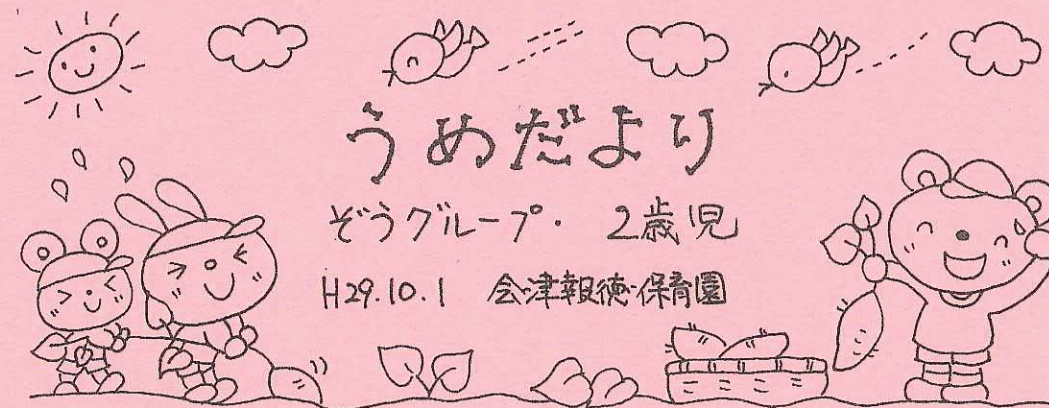 うめだより
ぞうグループ・ 2歳児
H29.10.1 会津報徳保育園